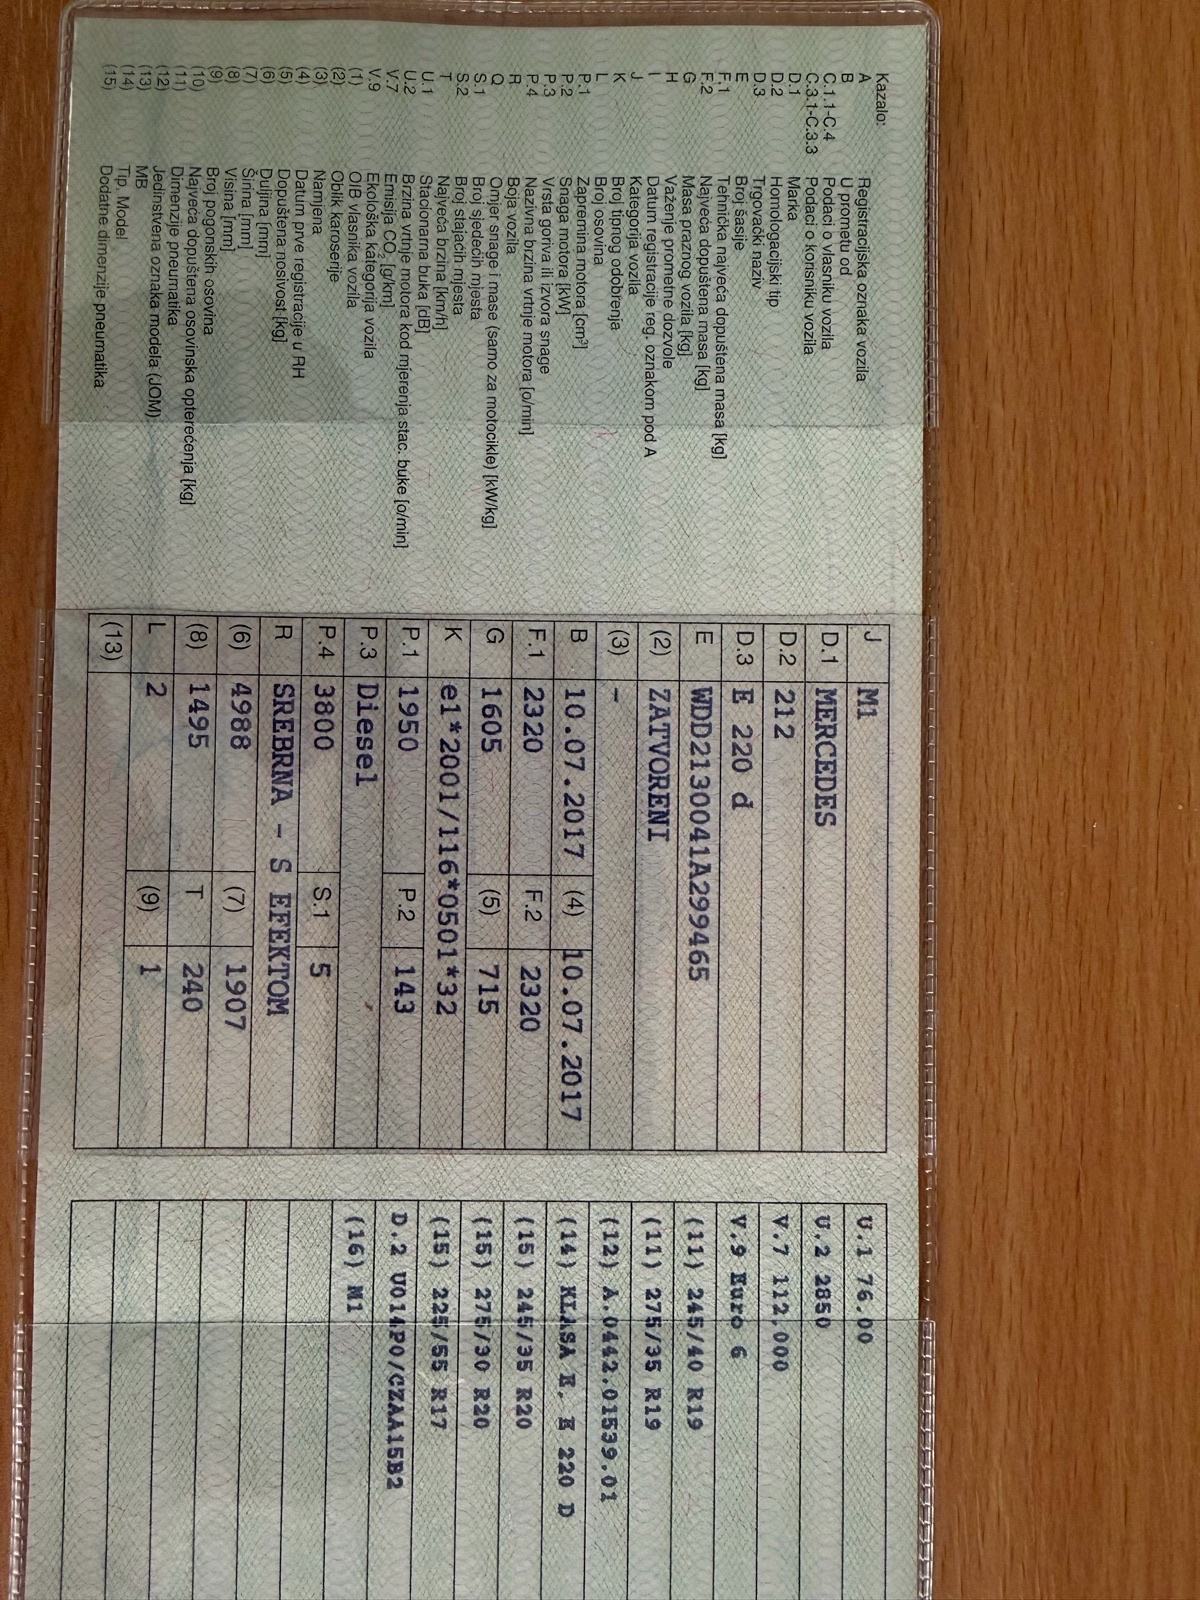 Kazalo:
A Registracijska oznaka vozila
B U prometu od
C.1.1-C.4 Podaci o vlasniku vozila
C.3.1-C.3.3 Podaci o korisniku vozila
D.1 Marka
D.2 Homologacijski tip
D.3 Trgovački naziv
E Broj šasije
F.1 Tehnička najveća dopuštena masa [kg]
F.2 Najveća dopuštena masa [kg]
G Masa praznog vozila [kg]
H Važenje prometne dozvole
I Datum registracije reg. oznakom pod A
J Kategorija vozila
K Broj tipnog odobrenja
L Broj osovina
P.1 Zapremina motora [cm³]
P.2 Snaga motora [kW]
P.3 Vrsta goriva ili izvora snage
P.4 Nazivna brzina vrtnje motora [o/min]
R Boja vozila
Q Omjer snage i mase (samo za motocikle) [kW/kg]
S.1 Broj sjedećih mjesta
S.2 Broj stajaćih mjesta
T Najveća brzina [km/h]
U.1 Stacionarna buka [dB]
U.2 Brzina vrtnje motora kod mjerenja stac. buke [o/min]
V.7 Emisija CO₂ [g/km]
V.9 Ekološka kategorija vozila
(1) OIB vlasnika vozila
(2) Oblik karoserije
(3) Namjena
(4) Datum prve registracije u RH
(5) Dopuštena nosivost [kg]
(6) Duljina [mm]
(7) Širina [mm]
(8) Visina [mm]
(9) Broj pogonskih osovina
(10) Najveća dopuštena osovinska opterećenja [kg]
(11) Dimenzije pneumatika
(12) Jedinstvena oznaka modela (JOM)
(13) MB
(14) Tip, Model
(15) Dodatne dimenzije pneumatika
J M1
D.1 MERCEDES
D.2 212
D.3 E 220 d
E WDD2130041A299465
(2) ZATVORENI
(3) -
B 10.07.2017 (4) 10.07.2017
F.1 2320 F.2 2320
G 1605 (5) 715
K e1*2001/116*0501*32
P.1 1950 P.2 143
P.3 Diesel
P.4 3800 S.1 5
R SREBRNA - S EFEKTOM
(6) 4988 (7) 1907
(8) 1495 T 240
L 2 (9) 1
(13)
U.1 76.00
U.2 2850
V.7 112.000
V.9 Euro 6
(11) 245/40 R19
(11) 275/35 R19
(12) A.0442.01539.01
(14) KLASA E, E 220 D
(15) 245/35 R20
(15) 275/30 R20
(15) 225/55 R17
D.2 U014P0/CZAA15B2
(16) M1